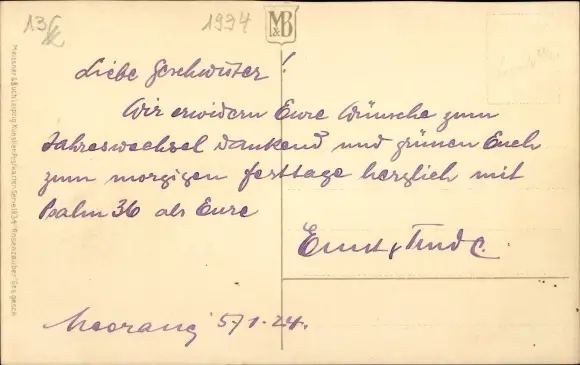 13
1934
M&B
Liebe Geschwister!
Wir erwidern Eure Wünsche zum
Jahreswechsel dankend und grüßen Euch
zum morgigen Festtage herzlich mit
Psalm 36 als Eure
Ernst & Trude.
5/1.24.
Meissner & Buch Leipzig Künstler-Postkarten Serie 1934 "Rosenzauber" Ges. gesch.